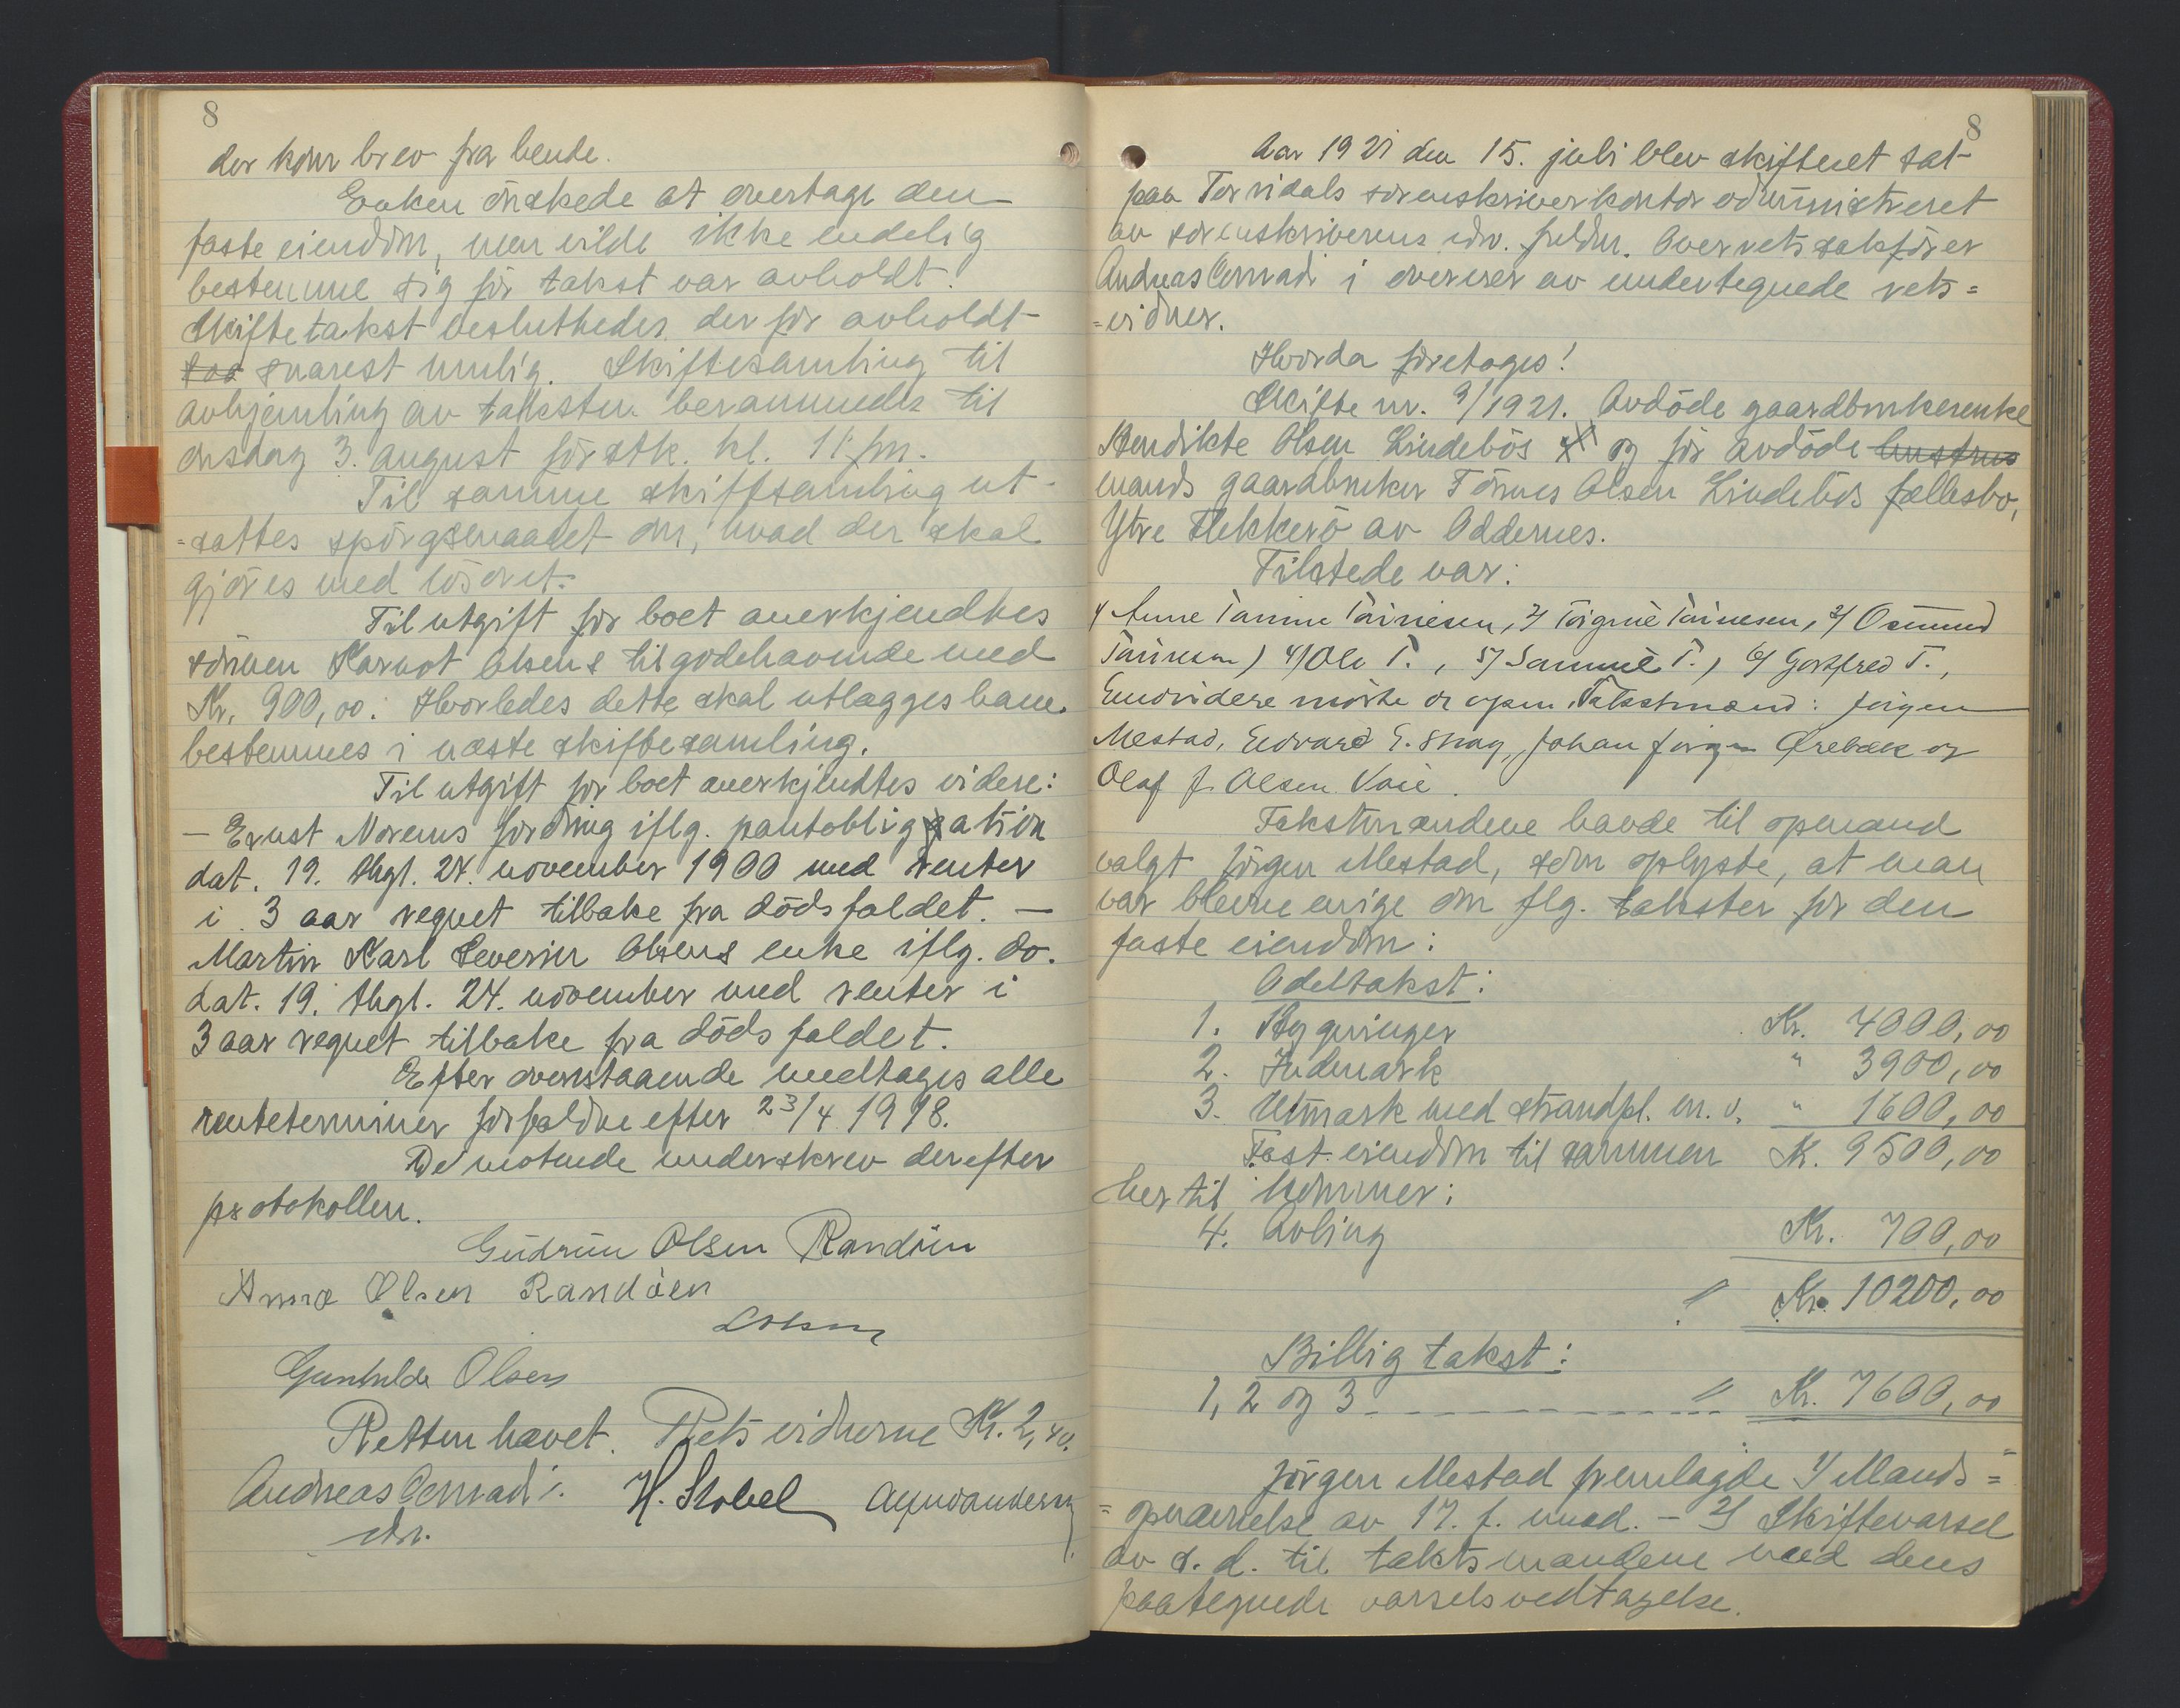 8
der kom brev fra hende.
Enken önskede at overtage den
faste eiendom, men vilde ikke endelig
bestemme sig før takst var avholdt.
Skiftetakst beslutteder derfor avholdt
snarest mulig. Skiftesamling til
avhjemling av taksten berammedes til
onsdag 3. august förstk. kl. 11 fm.
Til samme skiftesamling ut-
=sattes spörgsmaalet om, hvad der skal
gjöres med lösöret.
Til utgift for boet anerkjendtes
sönnen Karnot Olsens tilgodehavende med
Kr. 900,00. Hvorledes dette skal utlægges ham
bestemmes i næste skiftesamling.
Til utgift for boet anerkjendtes videre:
— Ernst Norems fordring iflg. pantobligation
dat. 19. thgl. 24. november 1900 med renter
i 3 aar regnet tilbake fra dödsfaldet. —
Martin Karl Severin Olsens enke iflg. do.
dat. 19. thgl. 24. november med renter i
3 aar regnet tilbake fra dödsfaldet.
Efter ovenstaaende medtages alle
renteterminer forfaldne efter 23/4 1918.
De mötende underskrev derefter
protokollen.
Gudrun Olsen Randöen
Anna Olsen Randöen
LOlsen
Gunhilda Olsen
Retten hævet. Retsvidnerne Kr. 2,40.
Andreas Conradi. H. Stobel
str.
8
Aar 1921 den 15. juli blev skifteret sat
paa Torridals sorenskriverkontor administreret
av sorenskriverens edsv. fuldm. Overretssakförer
Andreas Conradi i overvær av undertegnede rets=
=vidner.
Hvorda foretoges:
Skifte nr. 9/1921. Avdöde gaardbrukerenke
Hendikte Olsen Lindebös og før avdöde hustrus
mands gaardbruker Törnes Olsen Lindebös fællesbo,
Ytre Flekkerö av Oddernes.
Tilstede var:
1/ Anne Tomine Törnesen, 2/ Torgine Törnesen, 3/ Osmund
Törnesen, 4/ Ole T., 5/ Samuel T., 6/ Gottfred T.,
Endvidere mötte de opn. Takstmænd: Jörgen
Mestad, Edvard E. Skag, Johan Jörgen Ørebæk og
Olaf J. Olsen Vaie.
Takstmændene havde til opmand
valgt Jörgen Mestad, som oplyste, at man
var blevne enige om flg. takster for den
faste eiendom:
Odelstakst:
1. Bygninger Kr. 4000,00
2. Indmark " 3900,00
3. Utmark med strandpl. m. v. " 1600,00
Fast eiendom til sammen K. 9500,00
hertil kommer:
4. Avling Kr. 700,00
// Kr. 10200,00
Billig takst:
1, 2 og 3 // Kr. 7600,00
Jörgen Mestad fremlagde 1/ Mands=
=opnævnelse av 17. f. mnd. – 2/ Skiftevarsel
av s. d. til takstmændene med dens
paategnede varselsvedtagelse.